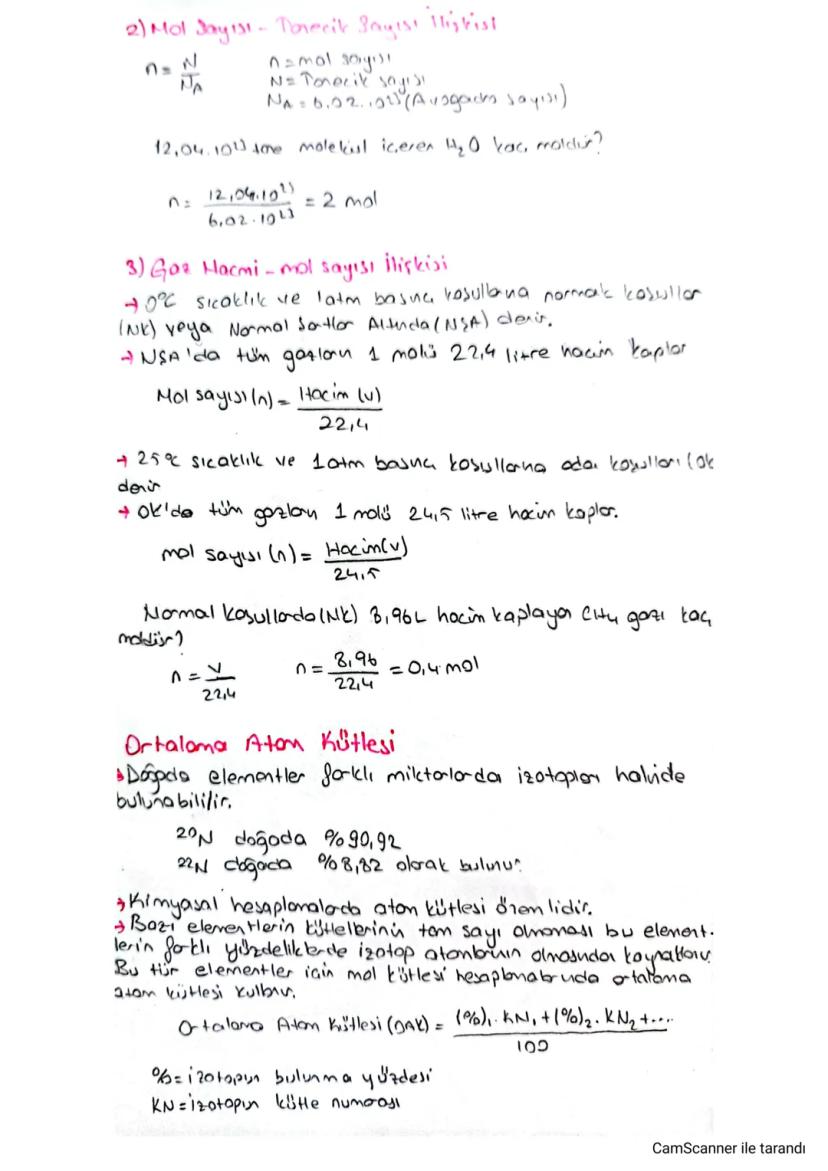 2) Mol Sayısı - Tanecik Sayısı İlişkisi
n = N / NA
n = mol sayısı
N = Tanecik sayısı
NA = 6,02.10²³ (Avogadro sayısı)
12,04.10²³ tane molekül içeren H₂O kaç moldür?
n = 12,04.10²³ / 6,02.10²³ = 2 mol
3) Gaz Hacmi - mol sayısı İlişkisi
→ 0°C sıcaklık ve 1 atm basınç koşullarına normal koşullar
(NK) veya Normal Şartlar Altında (NŞA) denir.
→ NŞA'da tüm gazların 1 molü 22,4 litre hacim kaplar
Mol sayısı (n) = Hacim (v) / 22,4
→ 25°C sıcaklık ve 1 atm basınç koşullarına oda koşulları (ok
denir
→ OK'da tüm gazların 1 molü 24,5 litre hacim kaplar.
mol sayısı (n) = Hacim (v) / 24,5
Normal koşullarda (NK) 8,96 L hacim kaplayan CH₄ gazı kaç
moldür?
n = v / 22,4   n = 8,96 / 22,4 = 0,4 mol
Ortalama Atom Kütlesi
→ Doğada elementler farklı miktarlarda izotopları halinde
bulunabililir.
²⁰N doğada %90,92
²²N doğada %8,82 olarak bulunur.
→ Kimyasal hesaplamalarda atom kütlesi önemlidir.
→ Bazı elementlerin kütlelerinin tam sayı olmaması bu element-
lerin farklı yüzdeliklerde izotop atomlarının olmasından kaynaklanır.
Bu tür elementler için mol kütlesi hesaplamalarında ortalama
atom kütlesi kullanılır.
Ortalama Atom Kütlesi (OAK) = (%)₁.KN₁ + (%)₂.KN₂ + .... / 100
% = izotopun bulunma yüzdesi
KN = izotopun kütle numarası
CamScanner ile tarandı